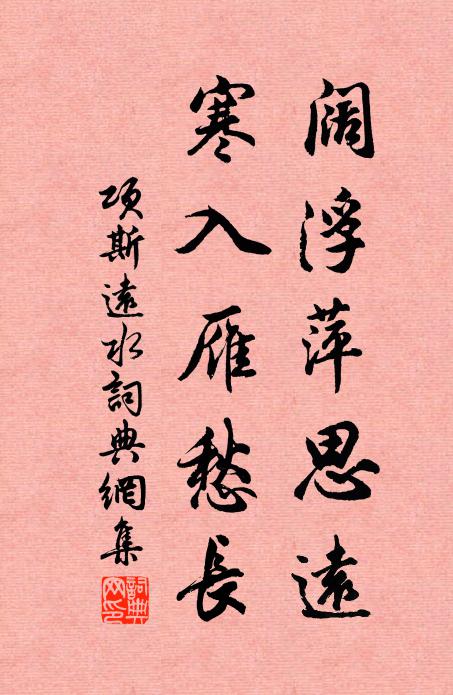 阔浮萍思遠
寒入雁愁長
項斯遠水詞典網集
詞典网印